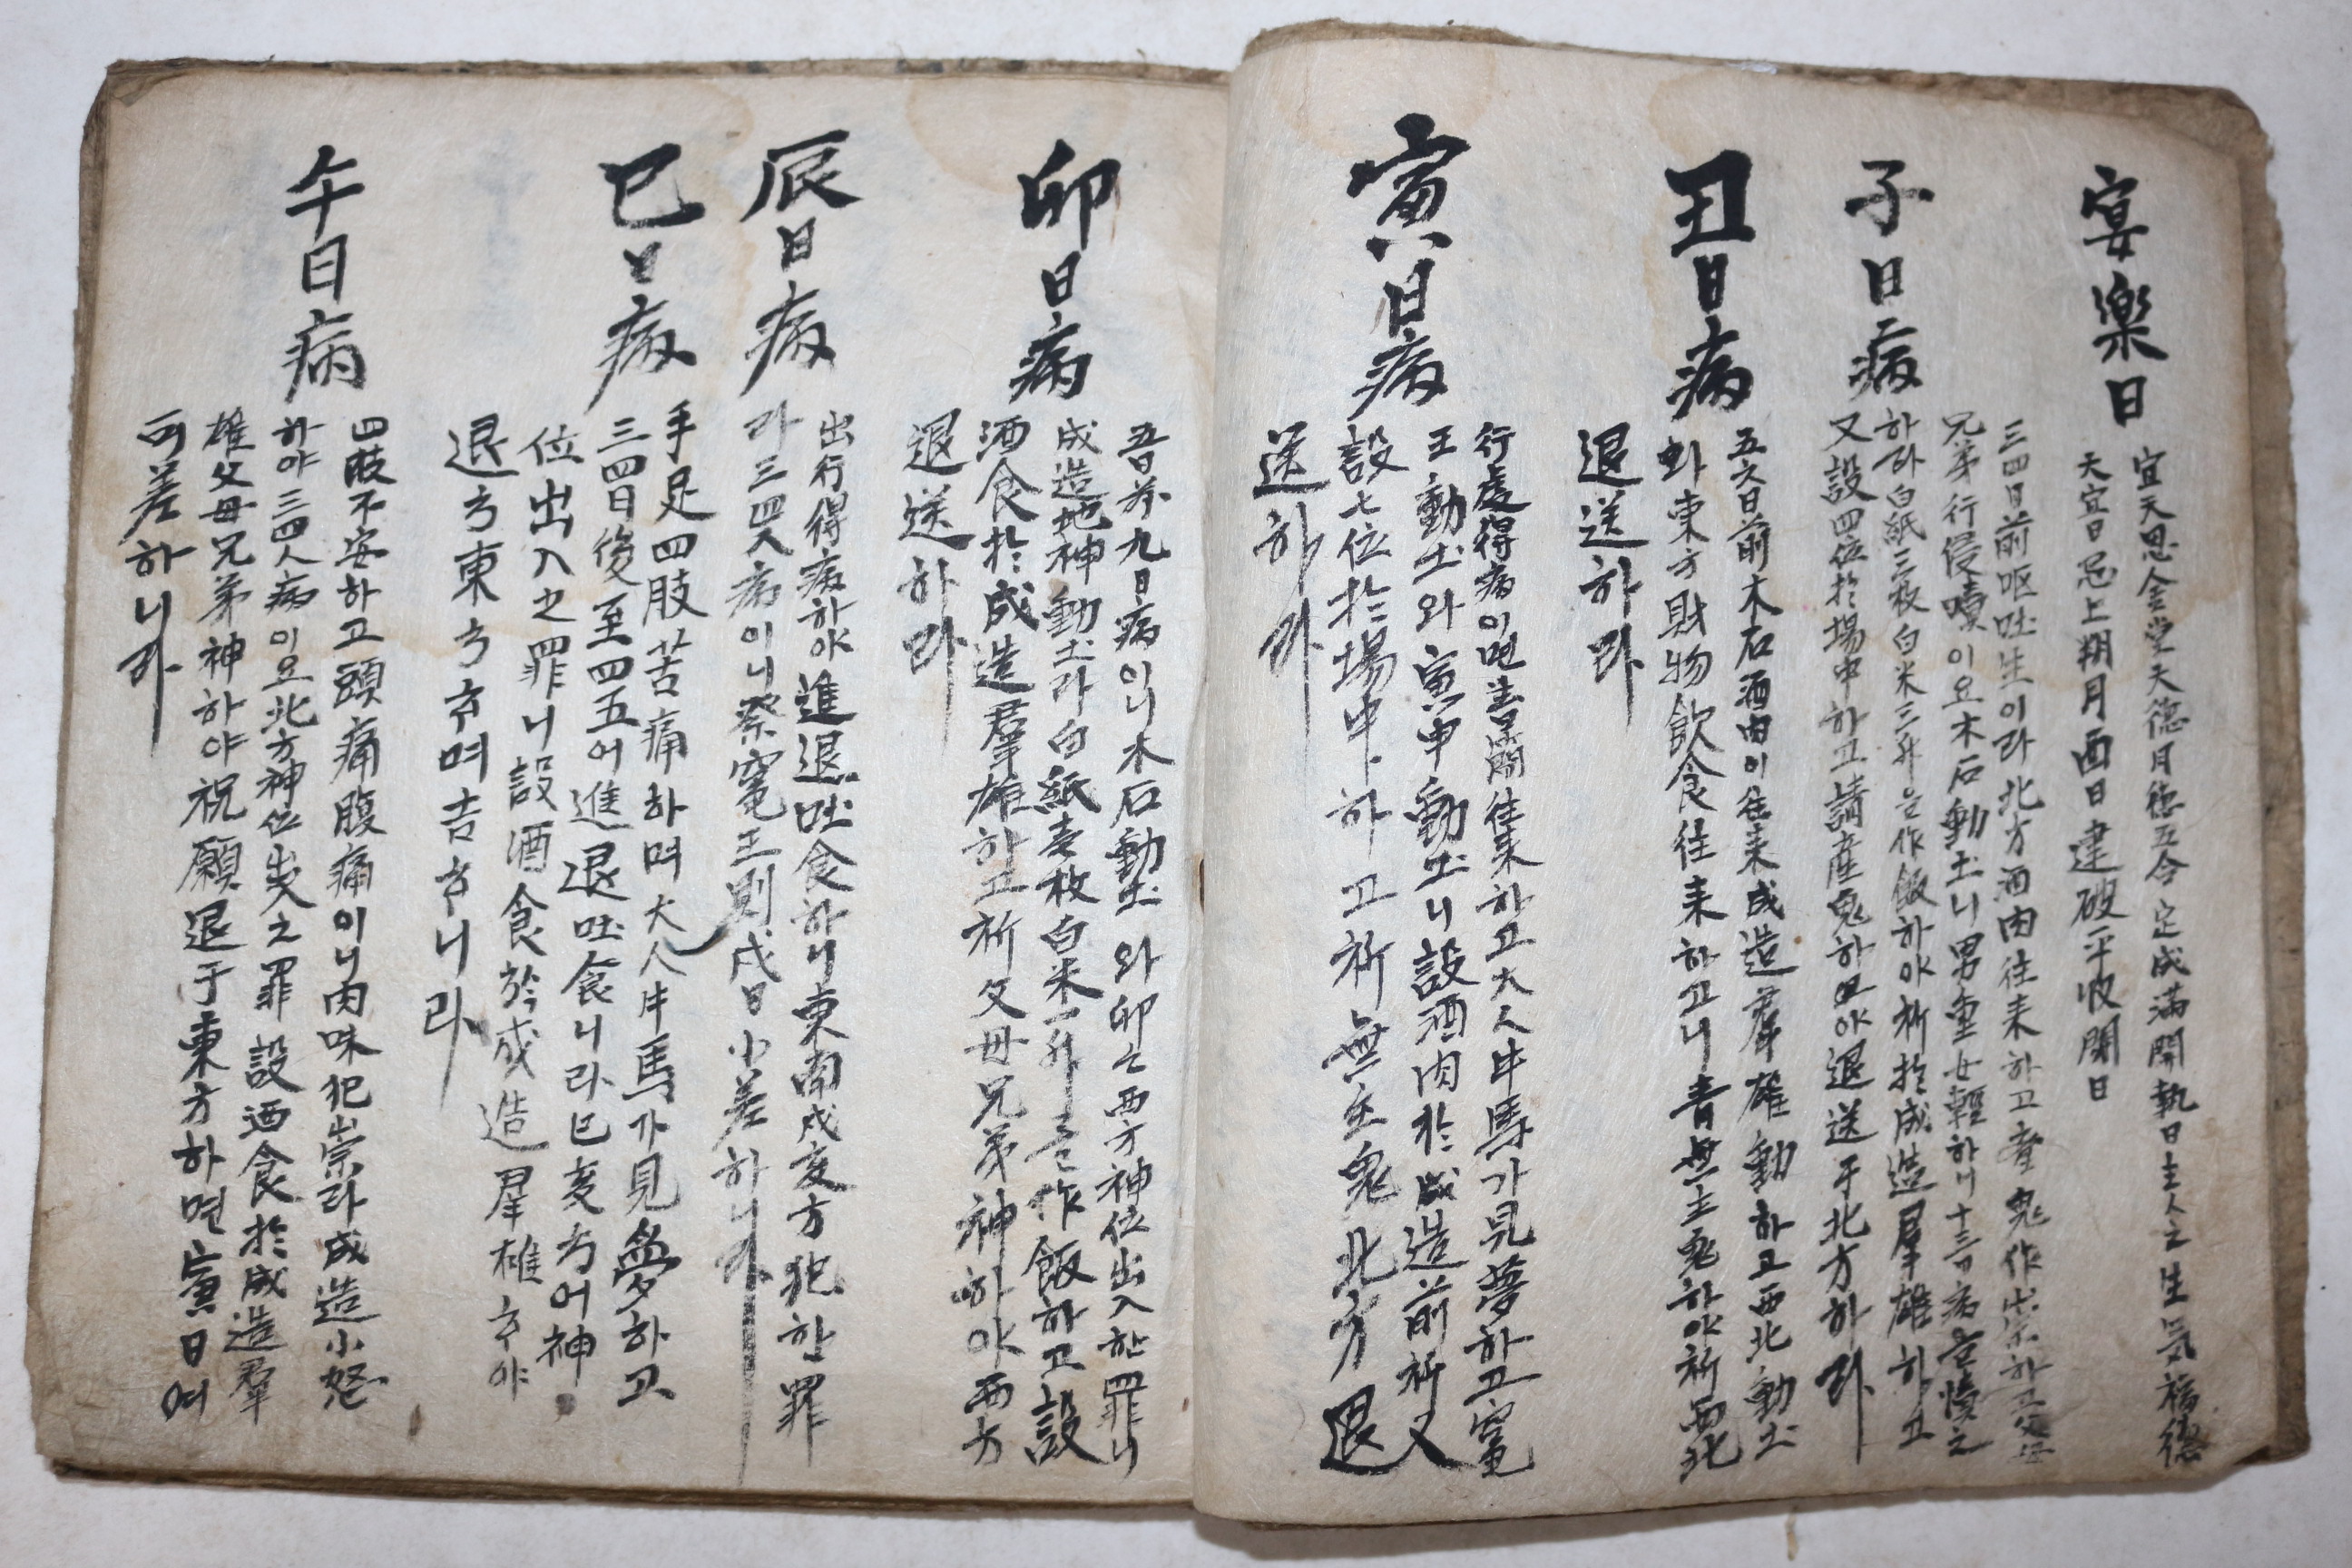 宴樂日
宜天恩金堂天德月德五合定成滿開執日主人之生氣福德
天宜日忌上朔月酉日建破平收閉日
子日病
三四日前呕吐生이라北方酒肉往来하고 鬼作出祟하고父母
兄弟行侵嘖이요木石動土니男重女輕하니十三日病
하라白紙三枚白米三升을作飯하야祈於成造羣雄하고
又設四位於場中하고請產鬼하야退送于北方하라
丑日病
五六日前木石酒肉이往来成造羣雄動하고西北動土
와東方財物飮食往来하고니青無主鬼하야祈西北
退送하라
寅日病
行處得病이면 往来하고大人牛馬가見夢하고竈
王動土와寅申動土니設酒肉於成造前祈又
設七位於場中하고祈無主鬼北方退
送하라
卯日病
吾日 九日病이니木石動土와卯之西方神位出入한罪니
成造地神動土라白紙壱枚白米一升을作飯하고設
酒食於成造羣雄하고祈父母兄弟神하야西方
退送하라
辰日病
出行得病하야進退吐食하니東南戌亥方犯한罪
라三四人病이니祭竈王則戌日小差하니라
巳日病
手足四肢苦痛하며大人牛馬가見夢하고
三四日後至四五어進退吐食니라巳亥方어神
位出入之罪니設酒食於成造羣雄ᄒᆞ야
退方東方ᄒᆞ며吉ᄒᆞ니라
午日病
四肢不安하고頭痛腹痛이니肉味犯祟라成造小怒
하야三四人病이요北方神位出入之罪設酒食於成造羣
雄父母兄弟神하야祝願退于東方하면寅日여
可差하니라